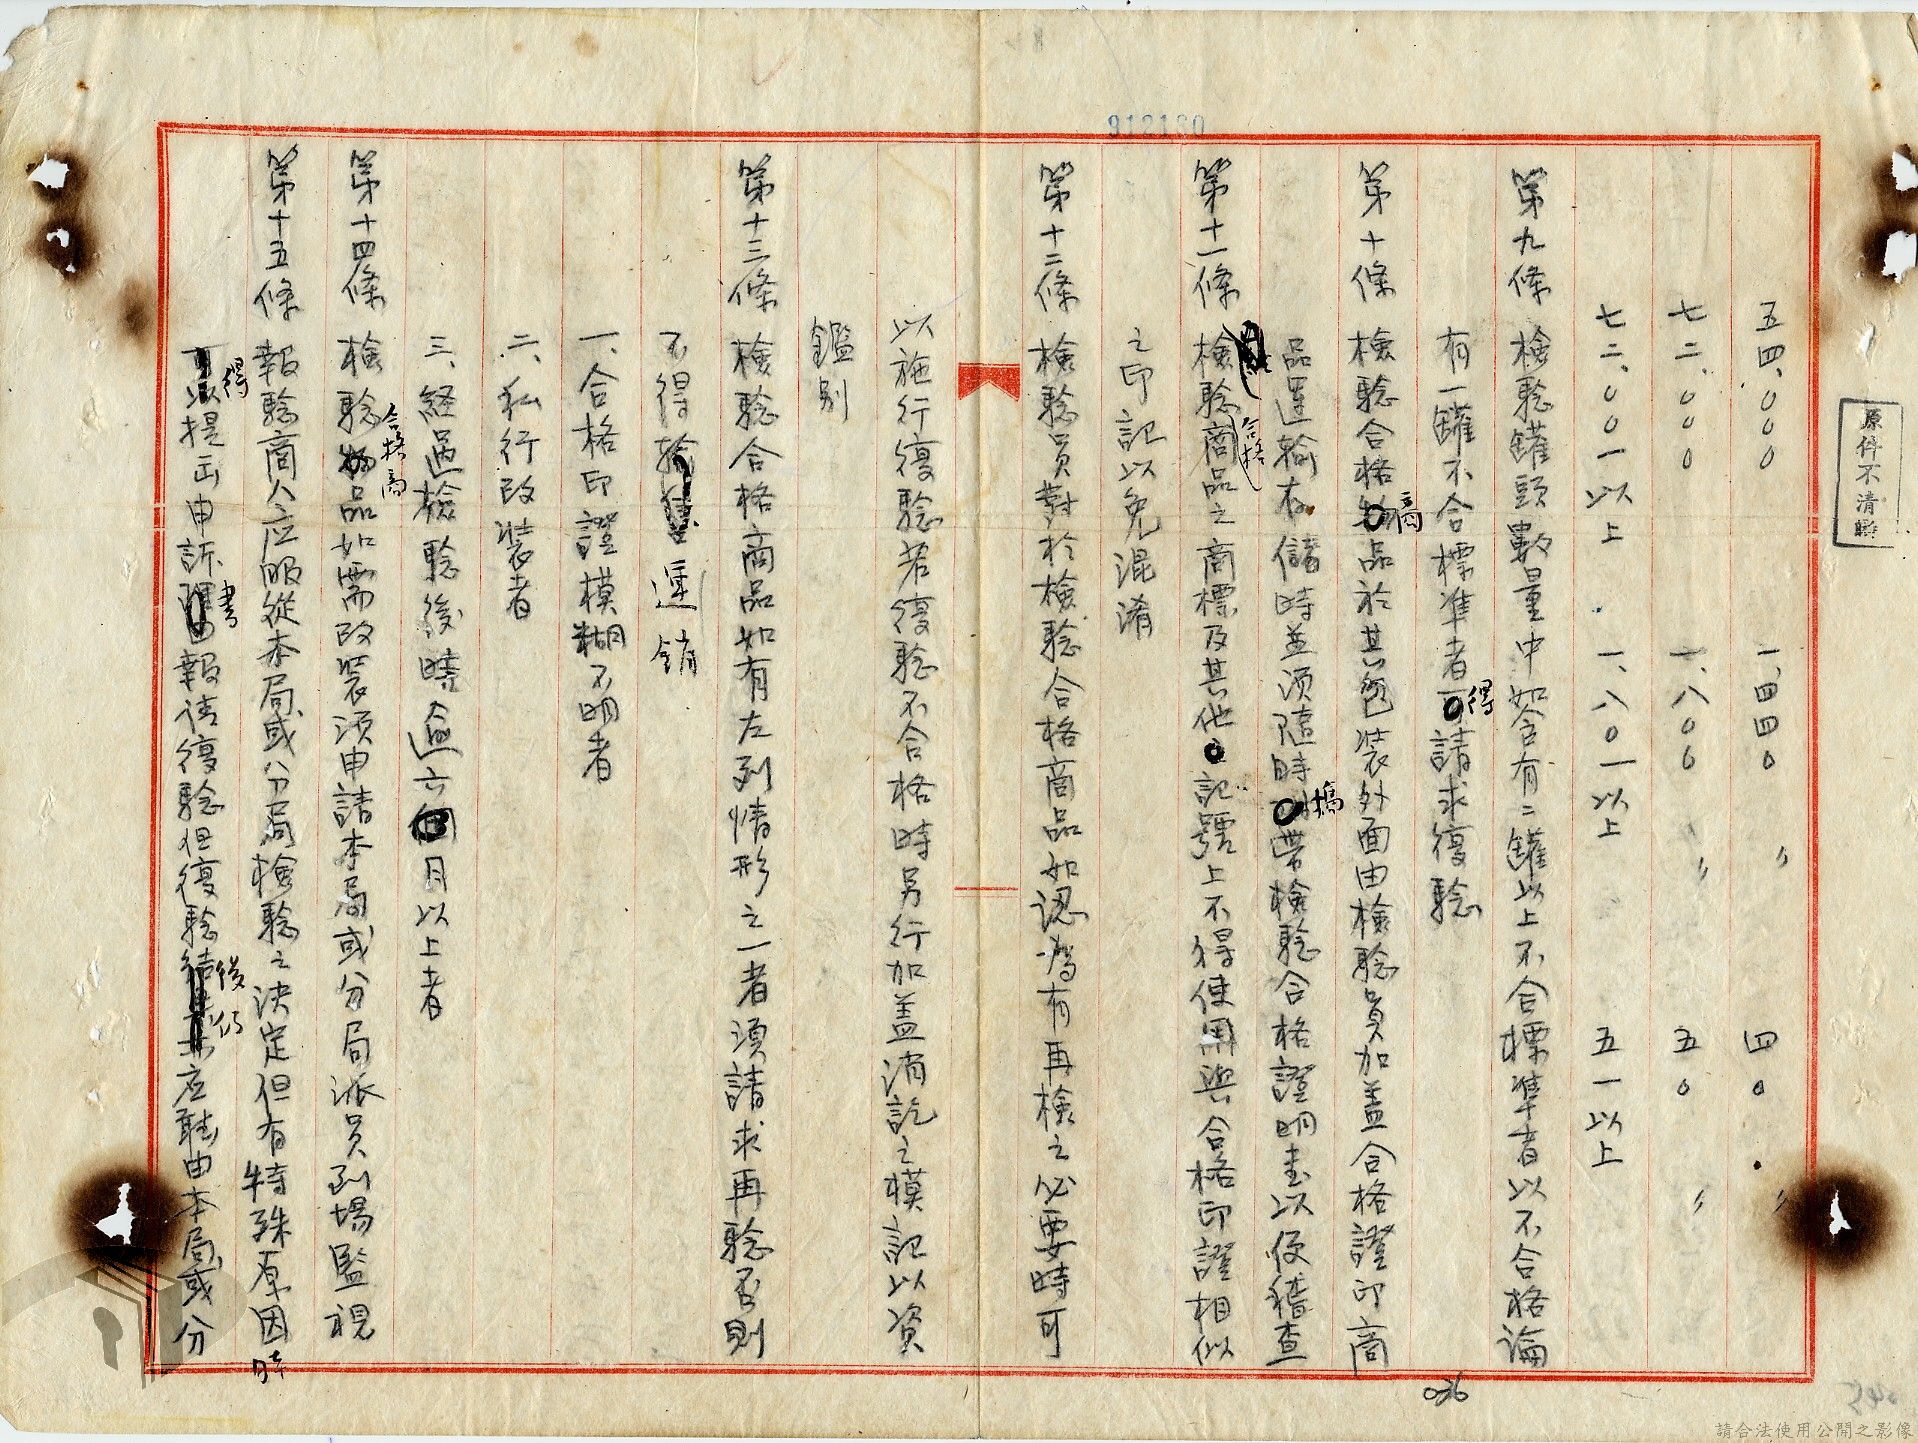 912160
原件不清晰
五四、〇〇〇 一、四四〇 〃 四〇 〃
七二、〇〇〇 一、八〇〇 〃 五〇 〃
七二、〇〇一以上 一、八〇一以上 五一以上
第九條 檢驗罐頭數量中如含有二罐以上不合標準者以不合格論
有一罐不合標準者得請求復驗
第十條 檢驗合格商品於其包裝外面由檢驗員加蓋合格證印商
品運輸存儲時並須隨時携帶檢驗合格證明書以便稽查
第十一條 檢驗合格商品之商標及其他記號上不得使用與合格印證相似
之印記以免混淆
第十二條 檢驗員對於檢驗合格商品如認為有再檢之必要時可
以施行復驗若復驗不合格時另行加蓋消訖之模記以資
鑑別
第十三條 檢驗合格商品如有左列情形之一者須請求再驗否則
不得運銷
一、合格印證模糊不明者
二、私行改裝者
三、経過檢驗後時逾六個月以上者
第十四條 檢驗合格商品如需改裝須申請本局或分局派員到場監視
第十五條 報驗商人应服從本局或分局檢驗之決定但有特殊原因時
得提出申訴書報請復驗但復驗後仍应聽由本局或分
036
請合法使用公開之影像